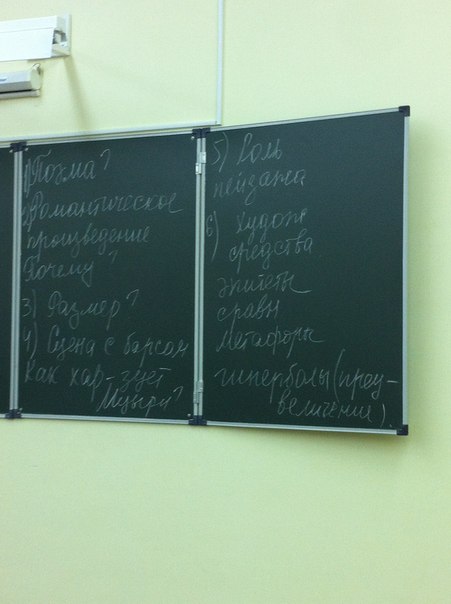 1) Поэма?
2) Романтическое
произведение
Почему?
3) Размер?
4) Сцена с барсом
Как хар-зует
Мцыри?
5) Роль
пейзажа
6) Худож
средства
эпитеты
сравн
метафоры
гиперболы (преу-
величение).